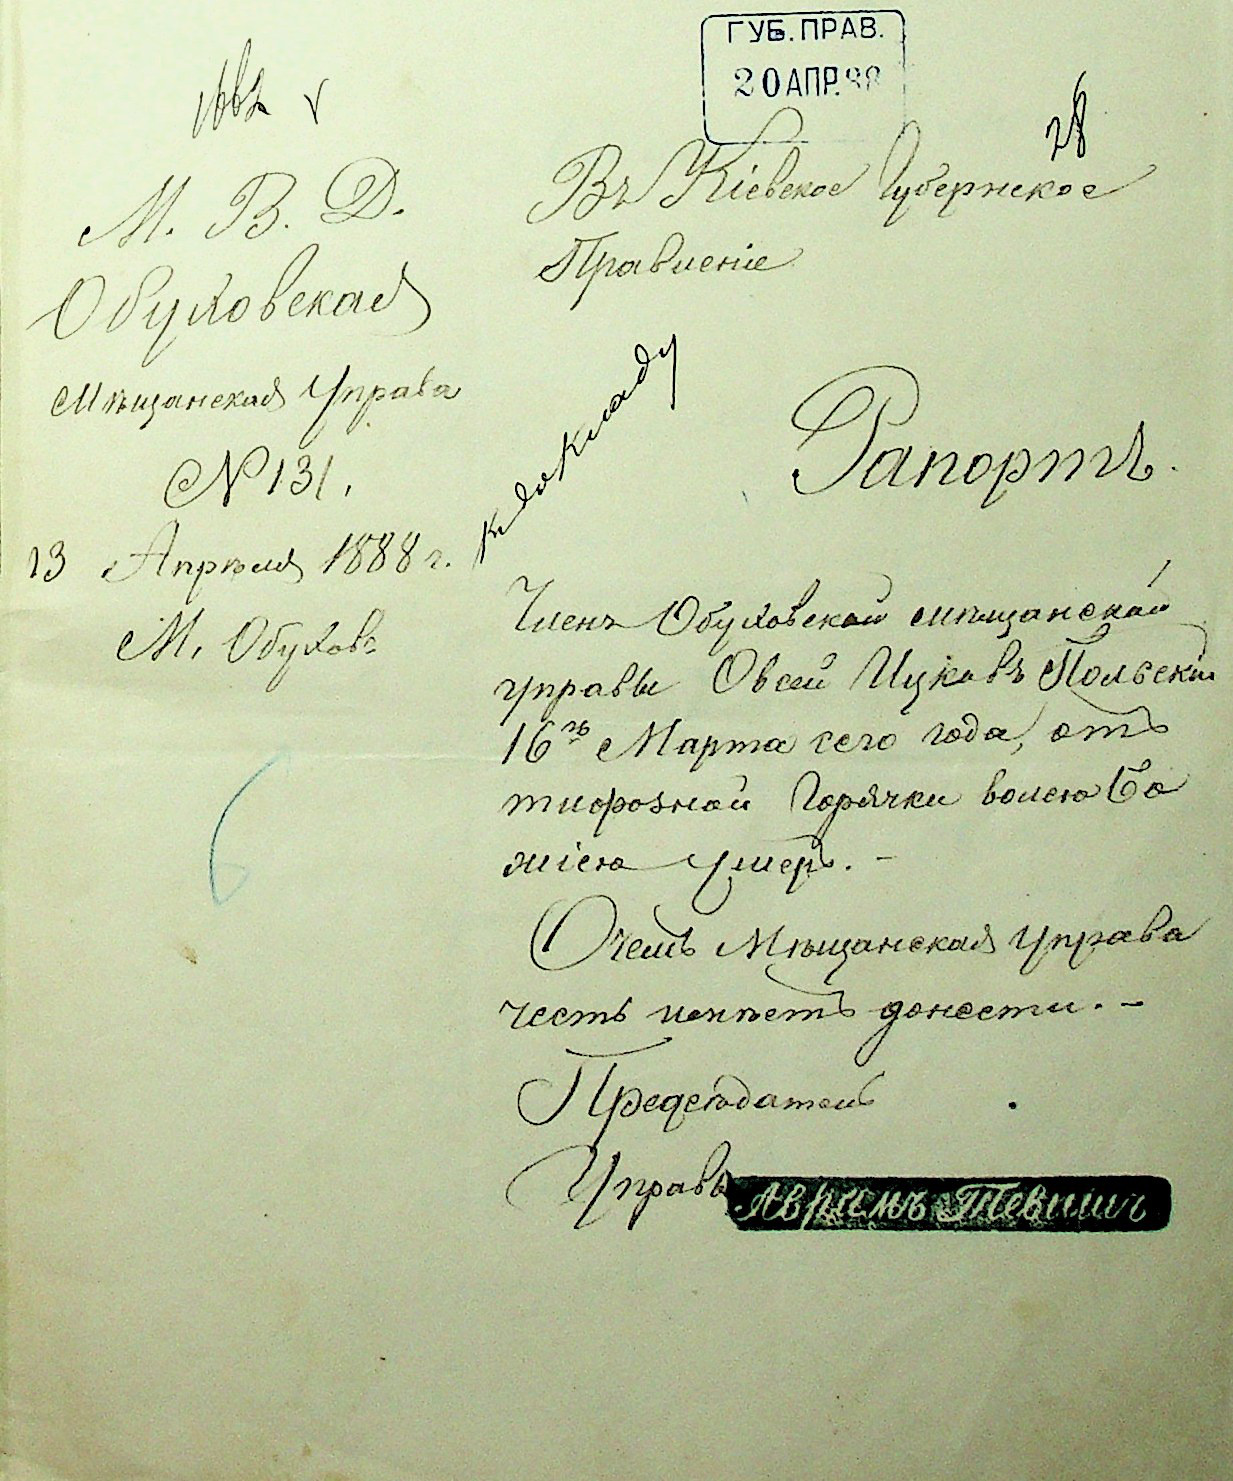 ГУБ. ПРАВ.
20 АПР. 88
1662
28
М. В. Д.
Обуховская
Мѣщанская Управа
№ 131.
13 Апрѣля 1888 г.
М. Обуховъ
Въ Кіевское Губернское
Правленіе
к докладу
Рапортъ.
Членъ Обуховской мѣщанской
управы Овсей Ицковъ Польскій
16го Марта сего года, отъ
тифозной горячки волею Бо
жіею умеръ. -
О чемъ Мѣщанская Управа
честь имѣетъ донести. -
Предсѣдатель
Управы Аврумъ Тевшич